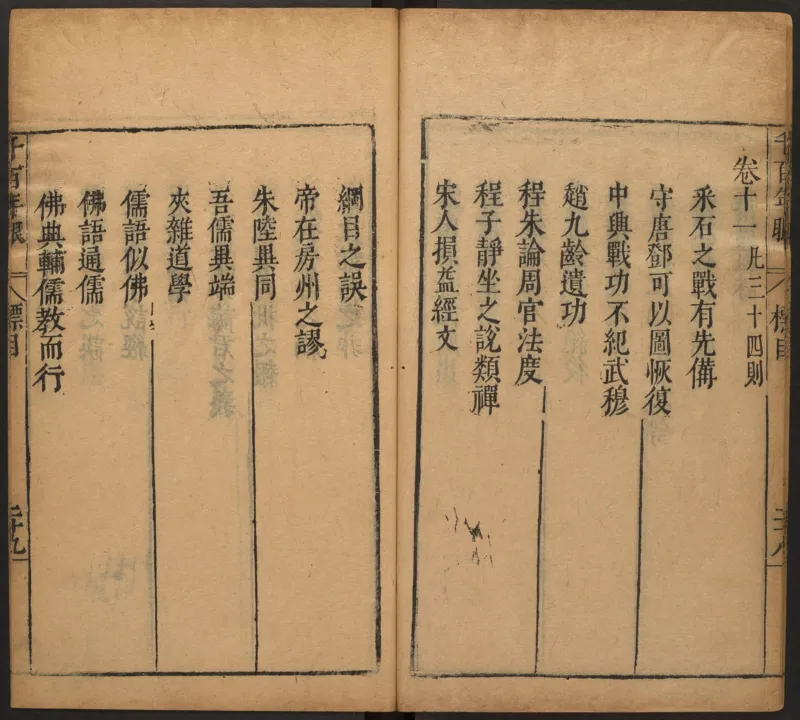 千百年眼 標目 二十八
卷十一 凡三十四則
采石之戰有先備
守唐鄧可以圖恢復
中興戰功不紀武穆
趙九齡遺功
程朱論周官法度
程子靜坐之說類禪
宋人損益經文
綱目之誤
帝在房州之謬
朱陸異同
吾儒異端
夾雜道學
儒語似佛
佛語通儒
佛典輔儒教而行
千百年眼 標目 二十九